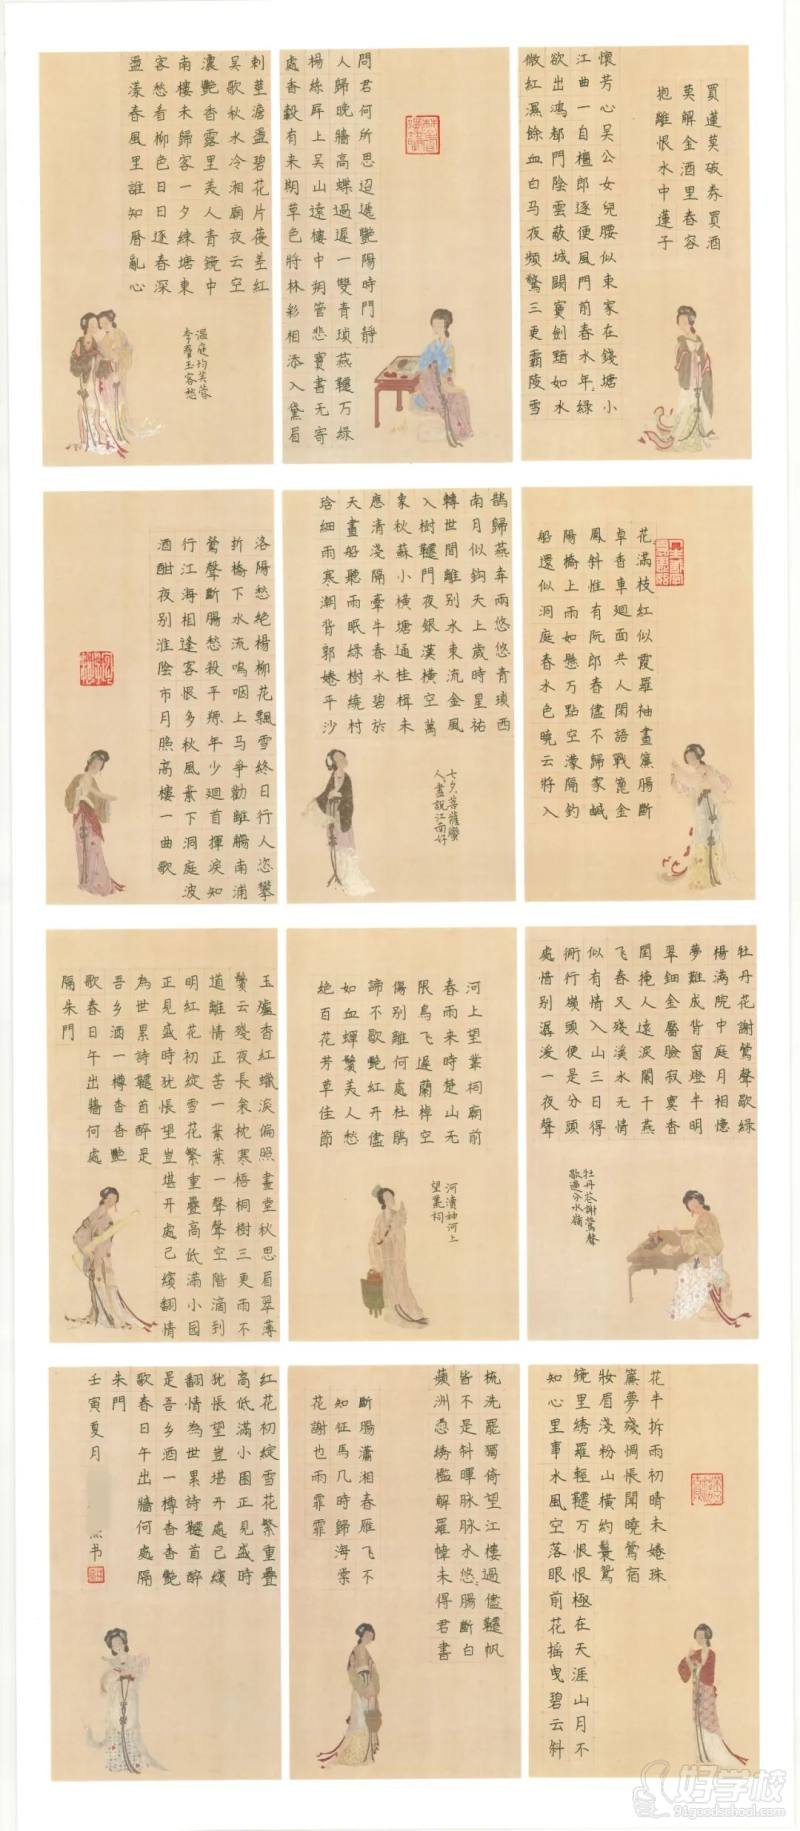 買蓮莫破券買酒
莫解金酒里春容
抱離恨水中蓮子
懷芳心吴公女兒腰似束家在錢塘小
江曲一自檀郎逐便風門前春水年綠
欲出鴻都門陰雲蔽城闕寶劍黯如水
微紅濕餘血白马夜頻驚三更霸陵雪
問君何所思迢遞艷陽時門靜
人歸晚牆高蝶過遲一雙青瑣燕韆万綠
楊絲屏上吴山遠樓中朔管悲寶書无寄
處香轂有来期草色將林彩相添入黛眉
刺莖澹盪碧花片差紅
吴歌秋水冷湘廟夜云空
濃艷香露里美人青鏡中
南樓未歸客一夕練塘東
客愁看柳色日日逐春深
盪漾春風里誰知曆亂心
温庭均芙蓉
李羣玉客愁
花滿枝紅似霞羅袖畫簾腸斷
卓香車廻面共人閑語戰篦金
鳳斜惟有阮郎春儘不歸家鹹
陽橋上雨如懸万點空濛隔釣
船還似洞庭春水色曉云將入
鵲歸燕奔兩悠悠青瑣西
南月似鈎天上歲時星祐
轉世間離别水東流金風
入樹韆門夜銀漢橫空萬
象秋蘇小横塘通桂楫未
應清淺隔牽牛春水碧於
天畫船聽雨眠綠樹繞村
琀細雨寒潮背郭婘平沙
七夕菩薩蠻
人人盡說江南好
洛陽愁絶楊柳花飄雪終日行人恣攀
折橋下水流嗚咽上马爭勸離腸南浦
鶯聲斷腸愁殺平原年少廻首揮淚知
行江海相逢客恨多秋風葉下洞庭波
酒酣夜别淮陰市月照高樓一曲歌
牡丹花謝鶯聲歇綠
楊滿院中庭月相憶
夢難成背窗燈半明
翠鈿金壓臉寂寞香
閨掩人遠淚闌干燕
飞春又殘溪水无情
似有情入山三日得
衕行嶺頭便是分頭
處惜别潺湲一夜聲
牡丹花謝鶯聲
歇過分水嶺
河上望叢祠廟前
春雨来時楚山无
限鳥飞遲蘭棹空
傷别離何處杜鵑
諦不歇艷紅开儘
如血蟬鬢美人愁
絶百花芳草佳節
河瀆神河上
望叢祠
玉爐香紅蠟淚偏照畫堂秋思眉翠薄
鬢云殘夜長衾枕寒梧桐樹三更雨不
道離情正苦一葉葉一聲聲空階滴到
明紅花初綻雪花繁重疊高低滿小园
正見盛時犹悵望豈堪开處已繽翻情
為世累詩韆首醉是
吾乡酒一樽杳杳艷
歌春日午出牆何處
隔朱門
花半拆雨初晴未婘珠
簾夢殘惆悵聞曉鶯宿
妝眉淺粉山横約鬟鸳
镜里绣羅輕韆万恨恨極在天涯山月不
知心里事水風空落眼前花摇曳碧云斜
梳洗罷獨倚望江樓過儘韆帆
皆不是斜暉脉脉水悠腸斷白
蘋洲悉綉檻解羅幃未得君書
斷腸瀟湘春雁飞不
知征馬几時歸海棠
花謝也雨霏霏
紅花初綻雪花繁重疊
高低滿小園正見盛時
犹悵望豈堪开處已繽
翻情為世累詩韆首醉
是吾乡酒一樽杳杳艷
歌春日午出牆何處隔
朱門
壬寅夏月
书
好学校
91goodschool.com